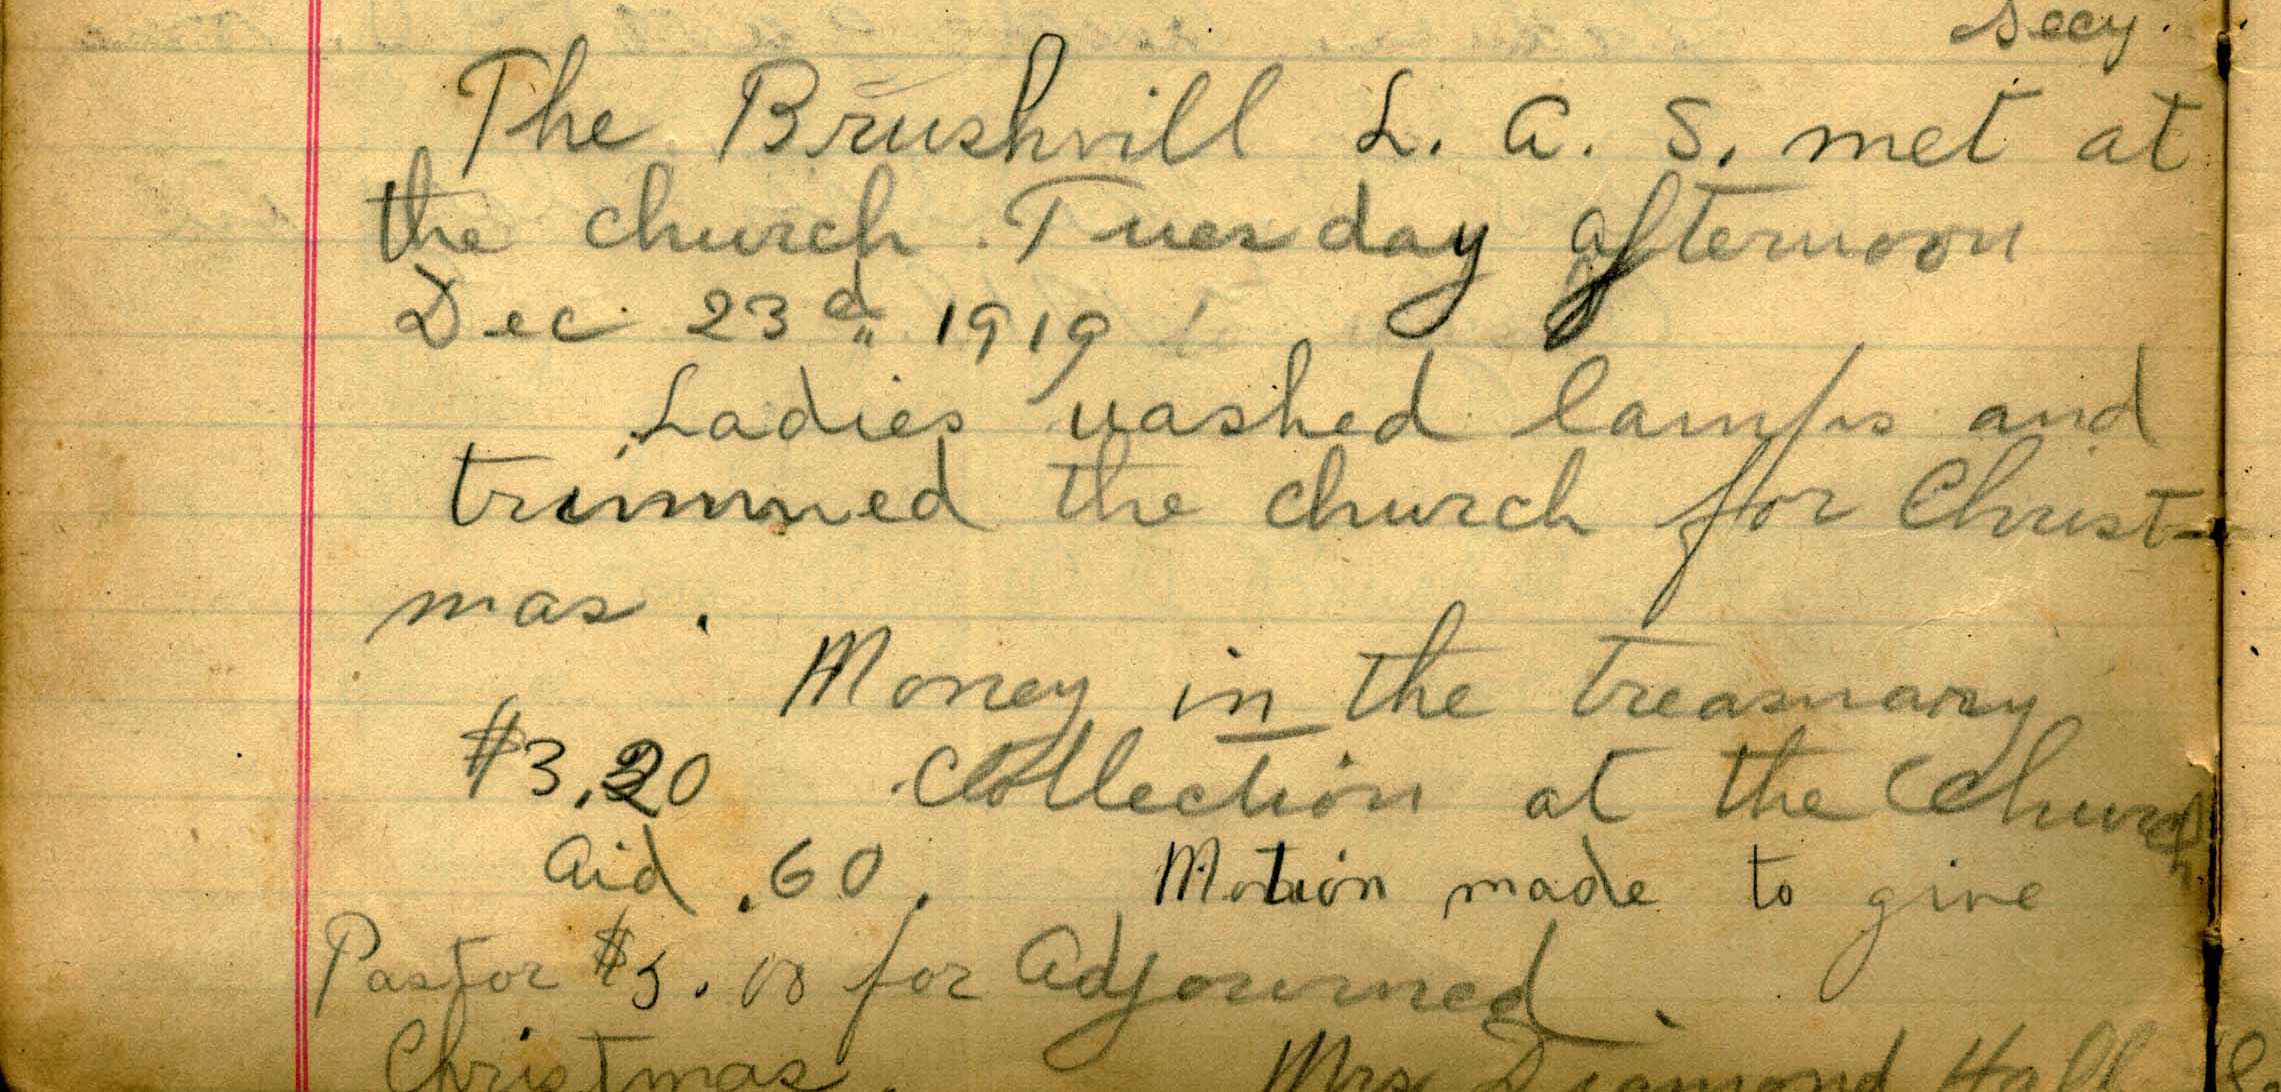 Secy.
The Brushvill L. A. S. met at
the church Tuesday afternoon
Dec. 23d 1919
Ladies washed lamps and
trimmed the church for Christ-
mas.
Money in the treasuary
$3.20 Collection at the Church
Aid .60. Motion made to give
Pastor $5.00 for Adjourned.
Christmas. Mrs Diamond Hall